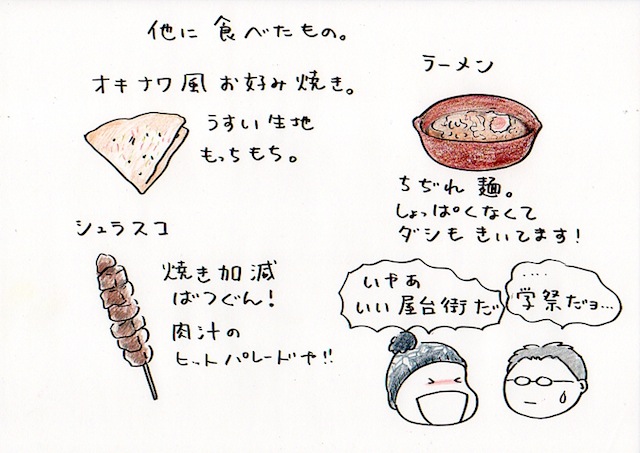 他に 食べたもの。
オキナワ風 お好み焼き。
うすい生地
もっちもち。
ラーメン
ちぢれ 麺。
しょっぱくなくて
ダシも きいてます!
シュラスコ
焼き加減
ばつぐん!
肉汁の
ヒットパレードや!!
いやぁ
いい屋台街だ
....
学祭だョ...